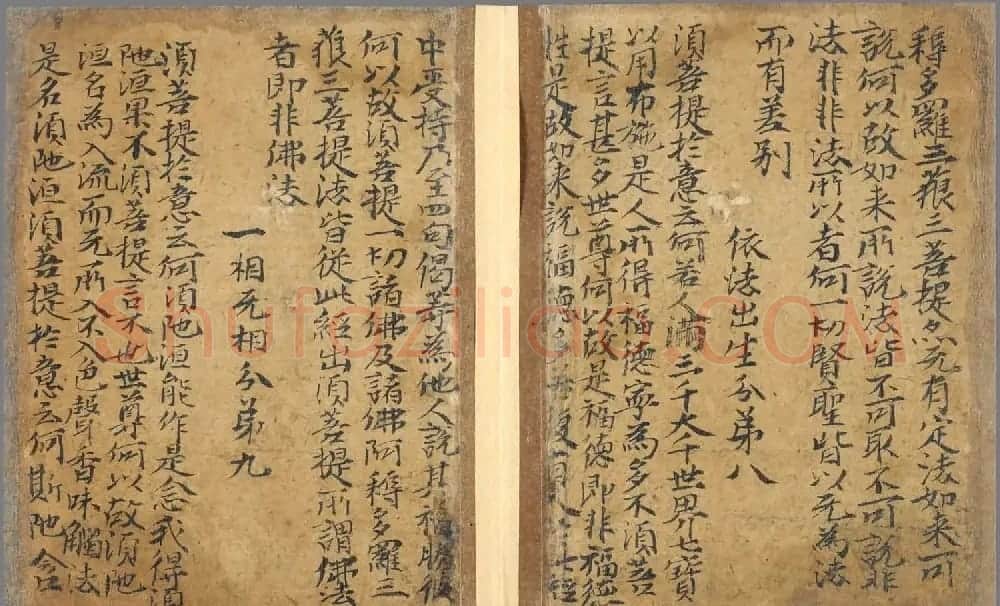 耨多羅三藐三菩提亦无有定法如来可
說何以故如来所說法皆不可取不可說非
法非非法所以者何一切賢聖皆以无為法
而有差别
依法出生分弟八
須菩提於意云何若人滿三千大千世界七寶
以用布施是人所得福德寧為多不須菩
提言甚多世尊何以故是福德即非福德
性是故如来說福德多若復有人於此經
中受持乃至四句偈等為他人說其福勝彼
何以故須菩提一切諸佛及諸佛阿耨多羅三
藐三菩提法皆從此經出須菩提所謂佛法
者即非佛法
一相无相分弟九
須菩提於意云何須陁洹能作是念我得須
陁洹果不須菩提言不也世尊何以故須陁
洹名為入流而无所入不入色聲香味觸法
是名須陁洹須菩提於意云何斯陁含
Shufaziliao.COM